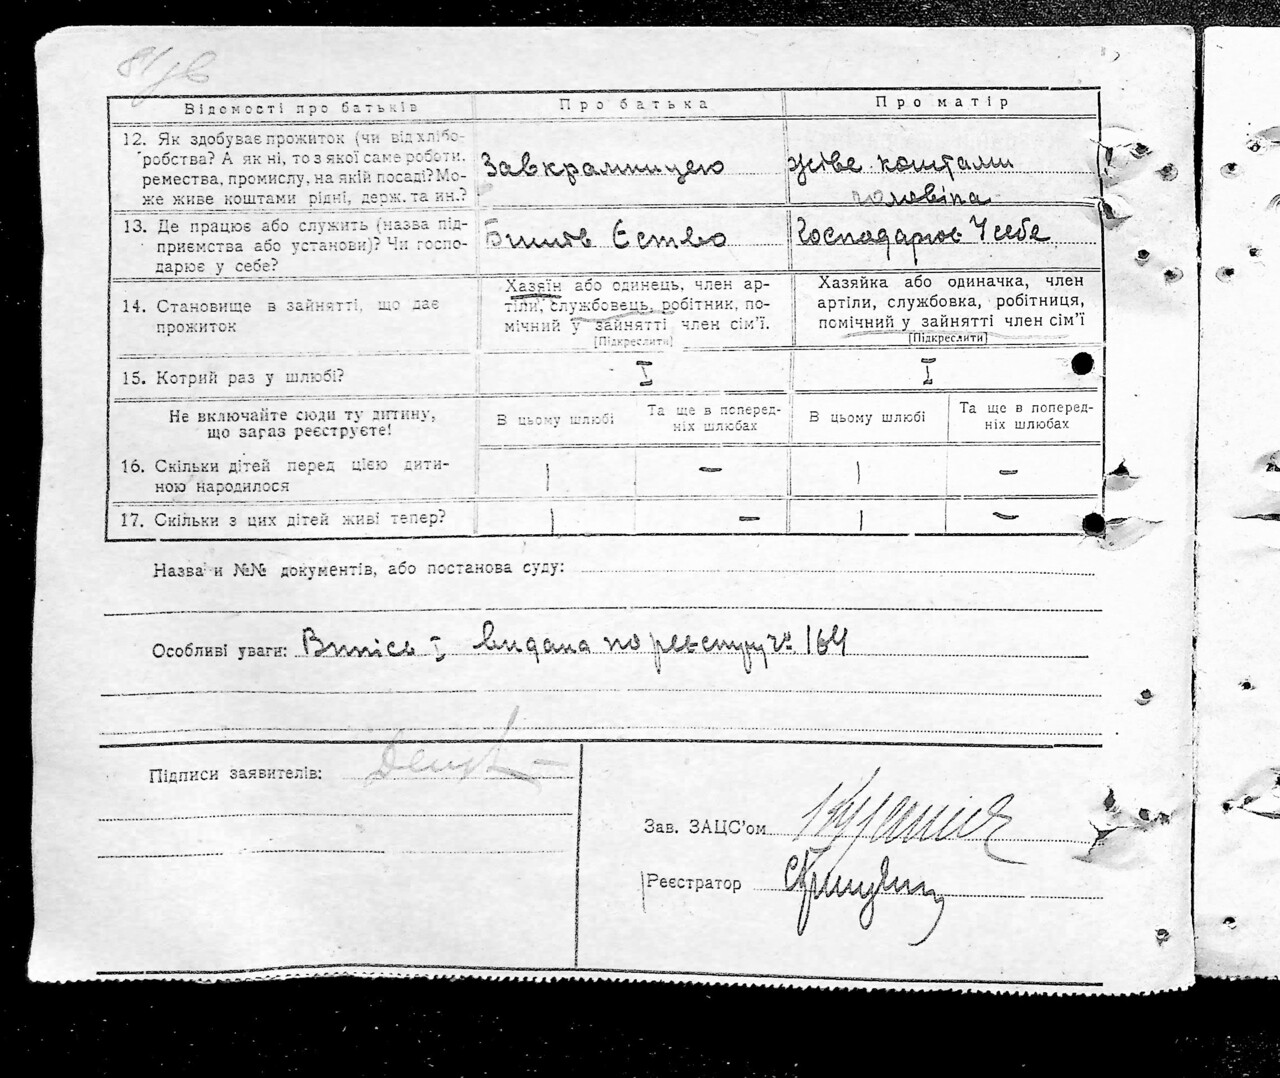 Відомості про батьків
Про батька
Про матір
12. Як здобуває прожиток (чи від хлібо-
робства? А як ні, то з якої саме роботи.
ремества, промислу, на якій посаді? Мо-
же живе коштами рідні, держ. та ин.?
Завкрамницею
живе коштами
чоловіка
13. Де працює або служить (назва під-
приємства або установи)? Чи госпо-
дарює у себе?
Господарює У себе
14. Становище в зайнятті, що дає
прожиток
Хазяїн або одинець, член ар-
тіли, службовець, робітник, по-
мічний у зайнятті член сім’ї.
[Підкреслити]
Хазяйка або одиначка, член
артіли, службовка, робітниця,
помічний у зайнятті член сім’ї
[Підкреслити]
15. Котрий раз у шлюбі?
I
I
Не включайте сюди ту дитину,
що зараз реєструєте!
В цьому шлюбі
Та ще в поперед-
ніх шлюбах
В цьому шлюбі
Та ще в поперед-
ніх шлюбах
16. Скільки дітей перед цією дити-
ною народилося
1 – 1 –
17. Скільки з цих дітей живі тепер?
1 – 1 –
Назва и №№ документів, або постанова суду:
Особливі уваги: Випись I видана по реєстру № 164
Підписи заявителів:
Зав. ЗАЦС’ом
Реєстратор